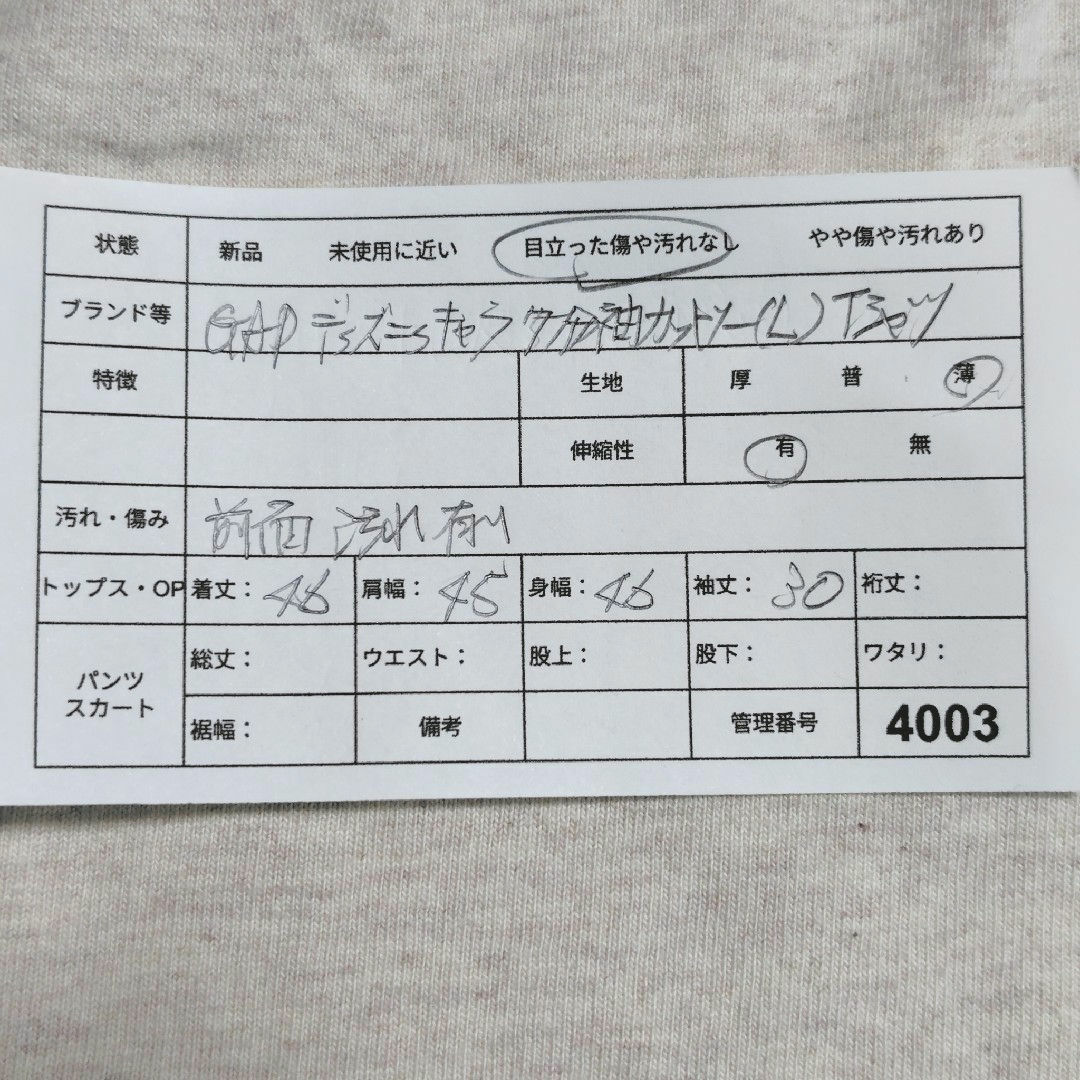 状態 新品 未使用に近い 目立った傷や汚れなし やや傷や汚れあり
ブランド等 GAP ディズニーキャラ 7分袖カットソー(L) Tシャツ
特徴 生地 厚 普 薄
伸縮性 有 無
汚れ・傷み 前面 汚れ有り
トップス・OP 着丈: 46 肩幅: 45 身幅: 46 袖丈: 30 裄丈:
パンツ スカート 総丈: ウエスト: 股上: 股下: ワタリ:
裾幅: 備考 管理番号 4003